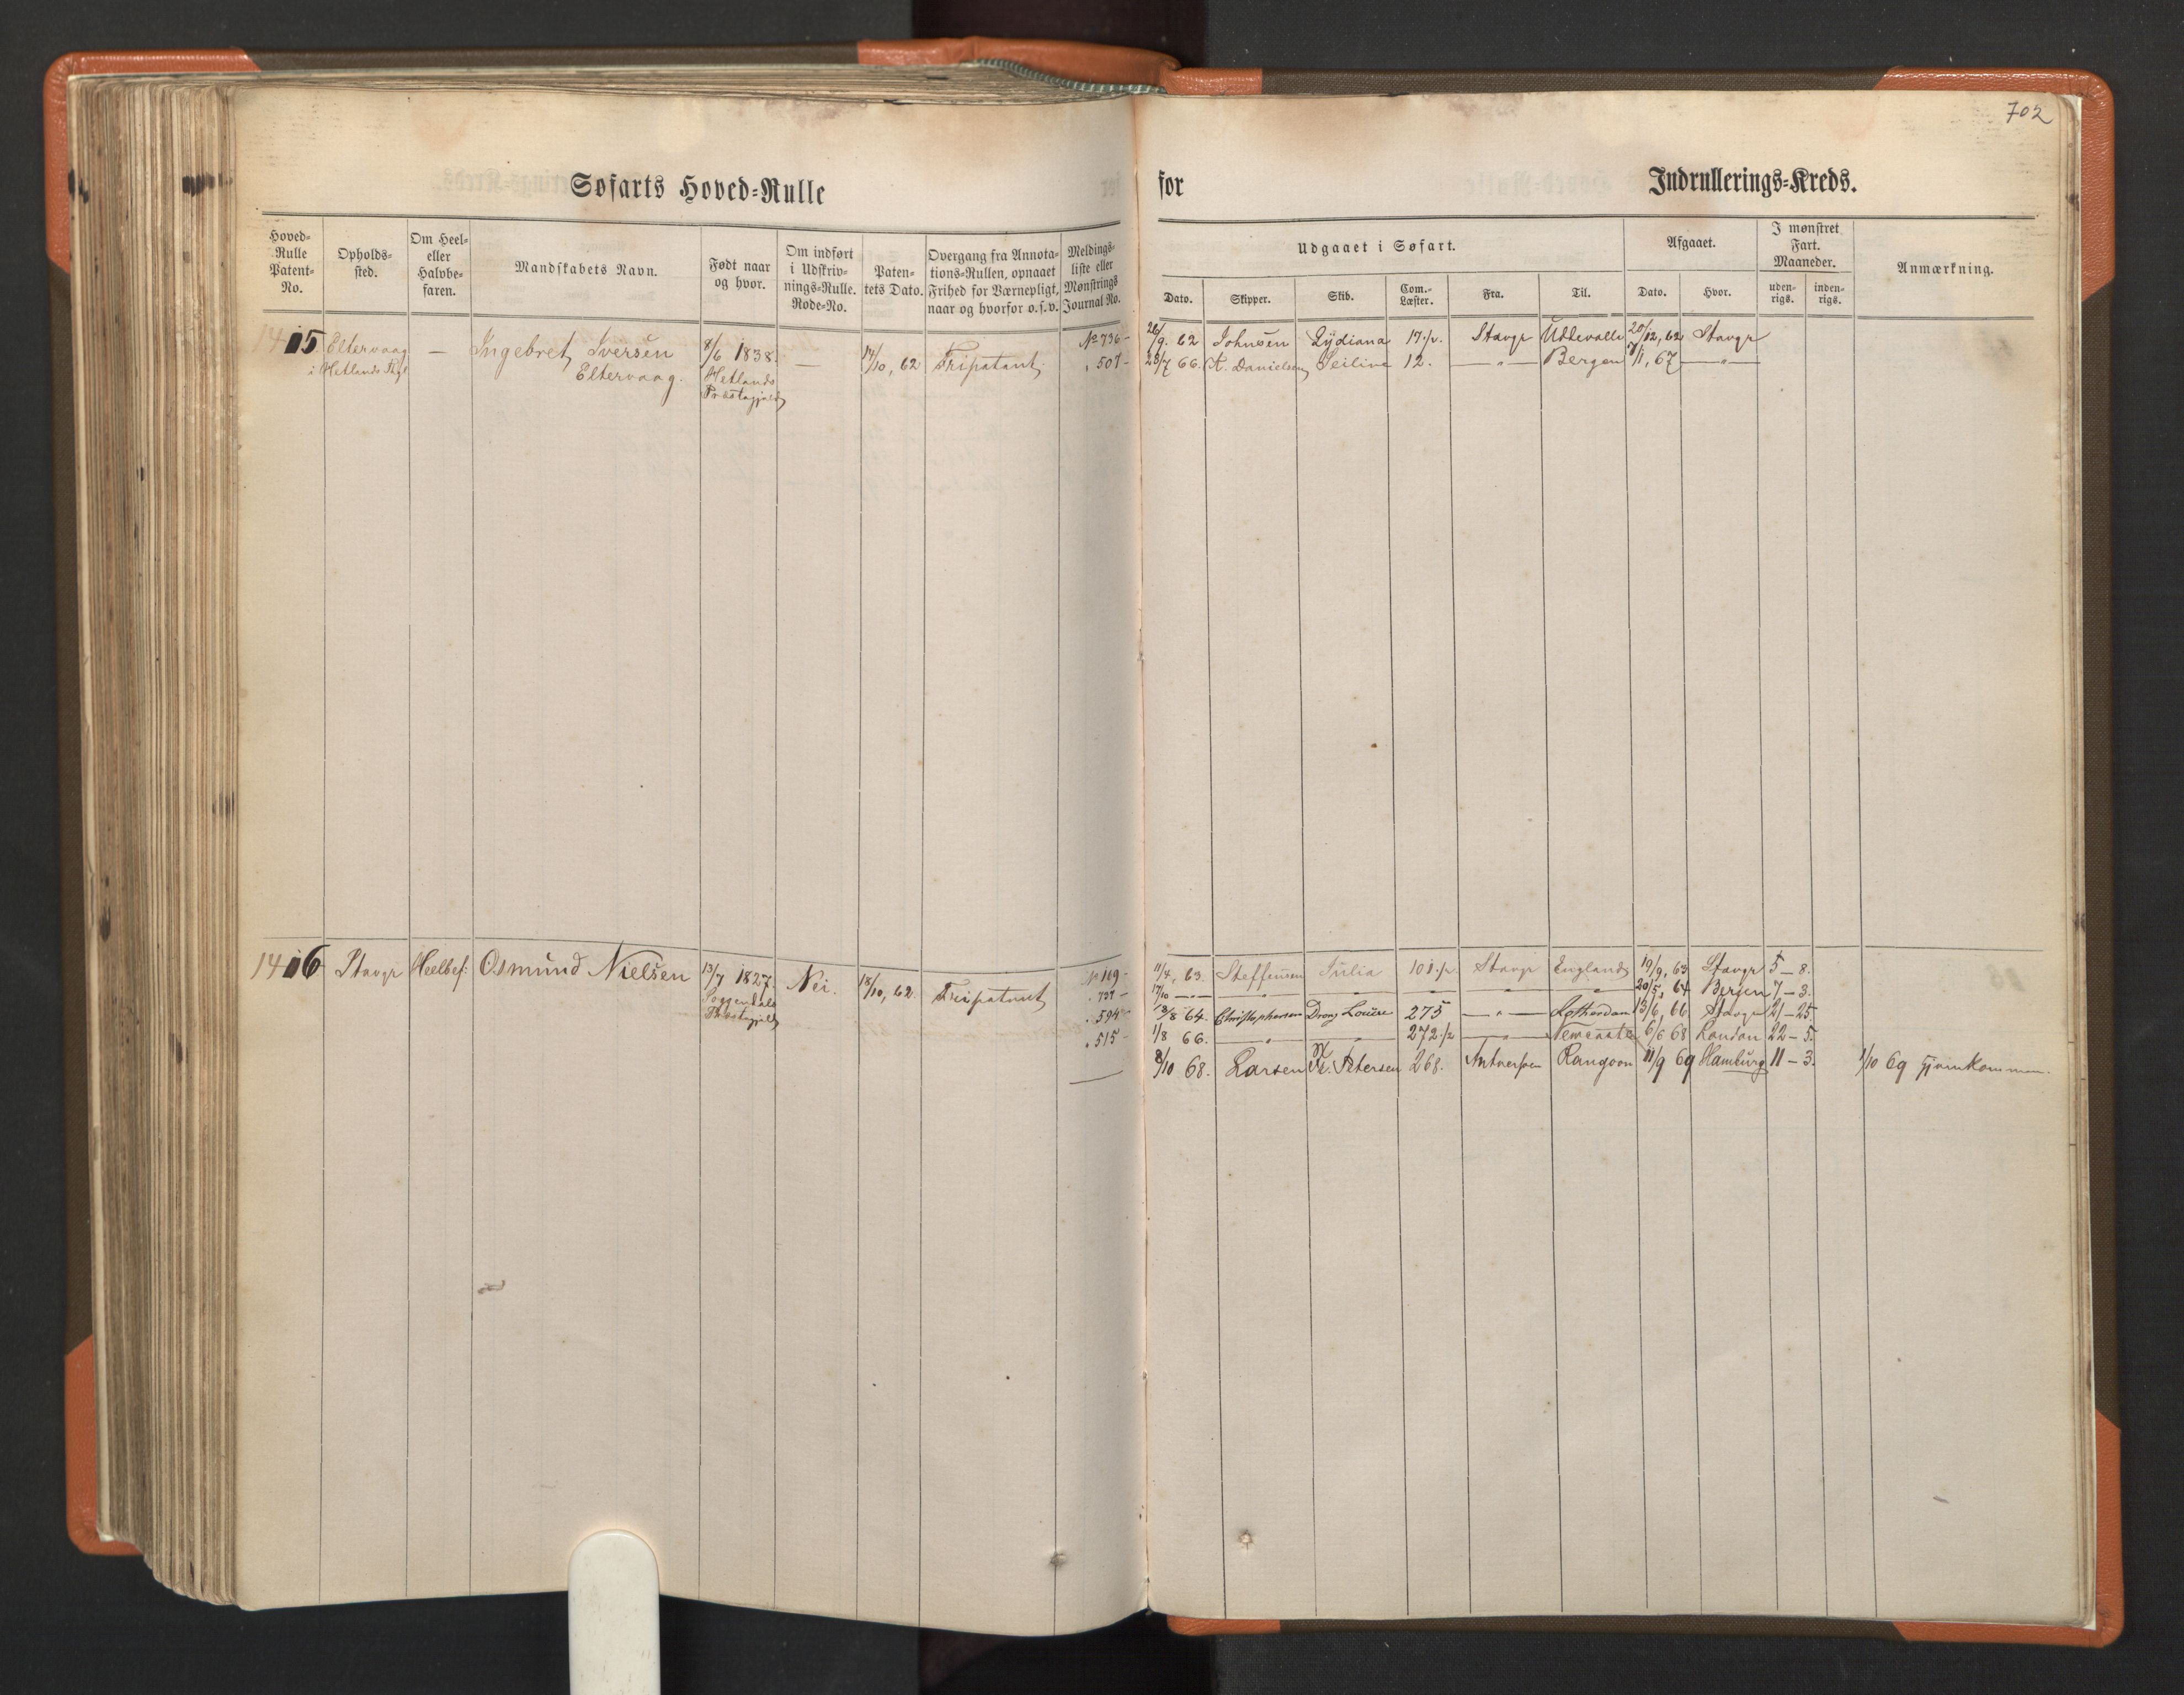 702
Søfarts Hoved=Rulle
for
Indrullerings=Kreds.
Hoved=
Rulle
Patent=
No.
Opholds=
sted.
Om Heel=
eller
Halvbe=
faren.
Mandskabets Navn.
Født naar
og hvor.
Om indført
i Udskriv=
nings=Rulle.
Rode=No.
Paten=
tets Dato.
Overgang fra Annota=
tions=Rullen, opnaaet
Frihed for Værnepligt,
naar og hvorfor o.s.v.
Meldings=
liste eller
Mønstrings
Journal No.
Udgaaet i Søfart.
Dato.
Skipper.
Skib.
Com.=
Læster.
Fra.
Til.
Afgaaet.
Dato.
Hvor.
I mønstret
Fart.
Maaneder.
uden=
rigs.
inden=
rigs.
Anmærkning.
1405 Eltervaag — Ingebret Iversen 8/6 1838. — 14/10, 62 Fripatent. No 736 – 26/9. 62 Johnsen Lydiana 17 1/2. Stavgr Uddevalla 20/12, 62 Stavgr
i Hetlands Pgl Eltervaag. Hetlands . 507 – 28/7 66. K. Danielsen Seiline 12. — " — Bergen 7/1, 67 — " —
Præstegjeld
1406 Stavgr Heelbef: Osmund Nielsen 13/7 1827. Nei. 18/10, 62. Fripatent No 169 – 11/4, 63. Steffensen Julia 101 1/2. Stavgr England 19/9, 63 Stavgr 5 – 8.
Soggendals . 737 – 17/10 — " — " " " " " 20/5, 64 Bergen 7 – 3.
Præstegjeld . 594 – 18/8 64. Christophersen Drong Louise 275 — " — Rotterdam 13/6, 66 Stavgr 21 – 25
. 515 – 1/8 66. " " 272 1/2 " Newcastle 6/6 68 London 22 – 5.
8/10 68. Larsen N. Petersen 268. Antwerpen Rangoon 11/9 69 Hamburg 11 – 3. 1/10 69 Hjemkommen.